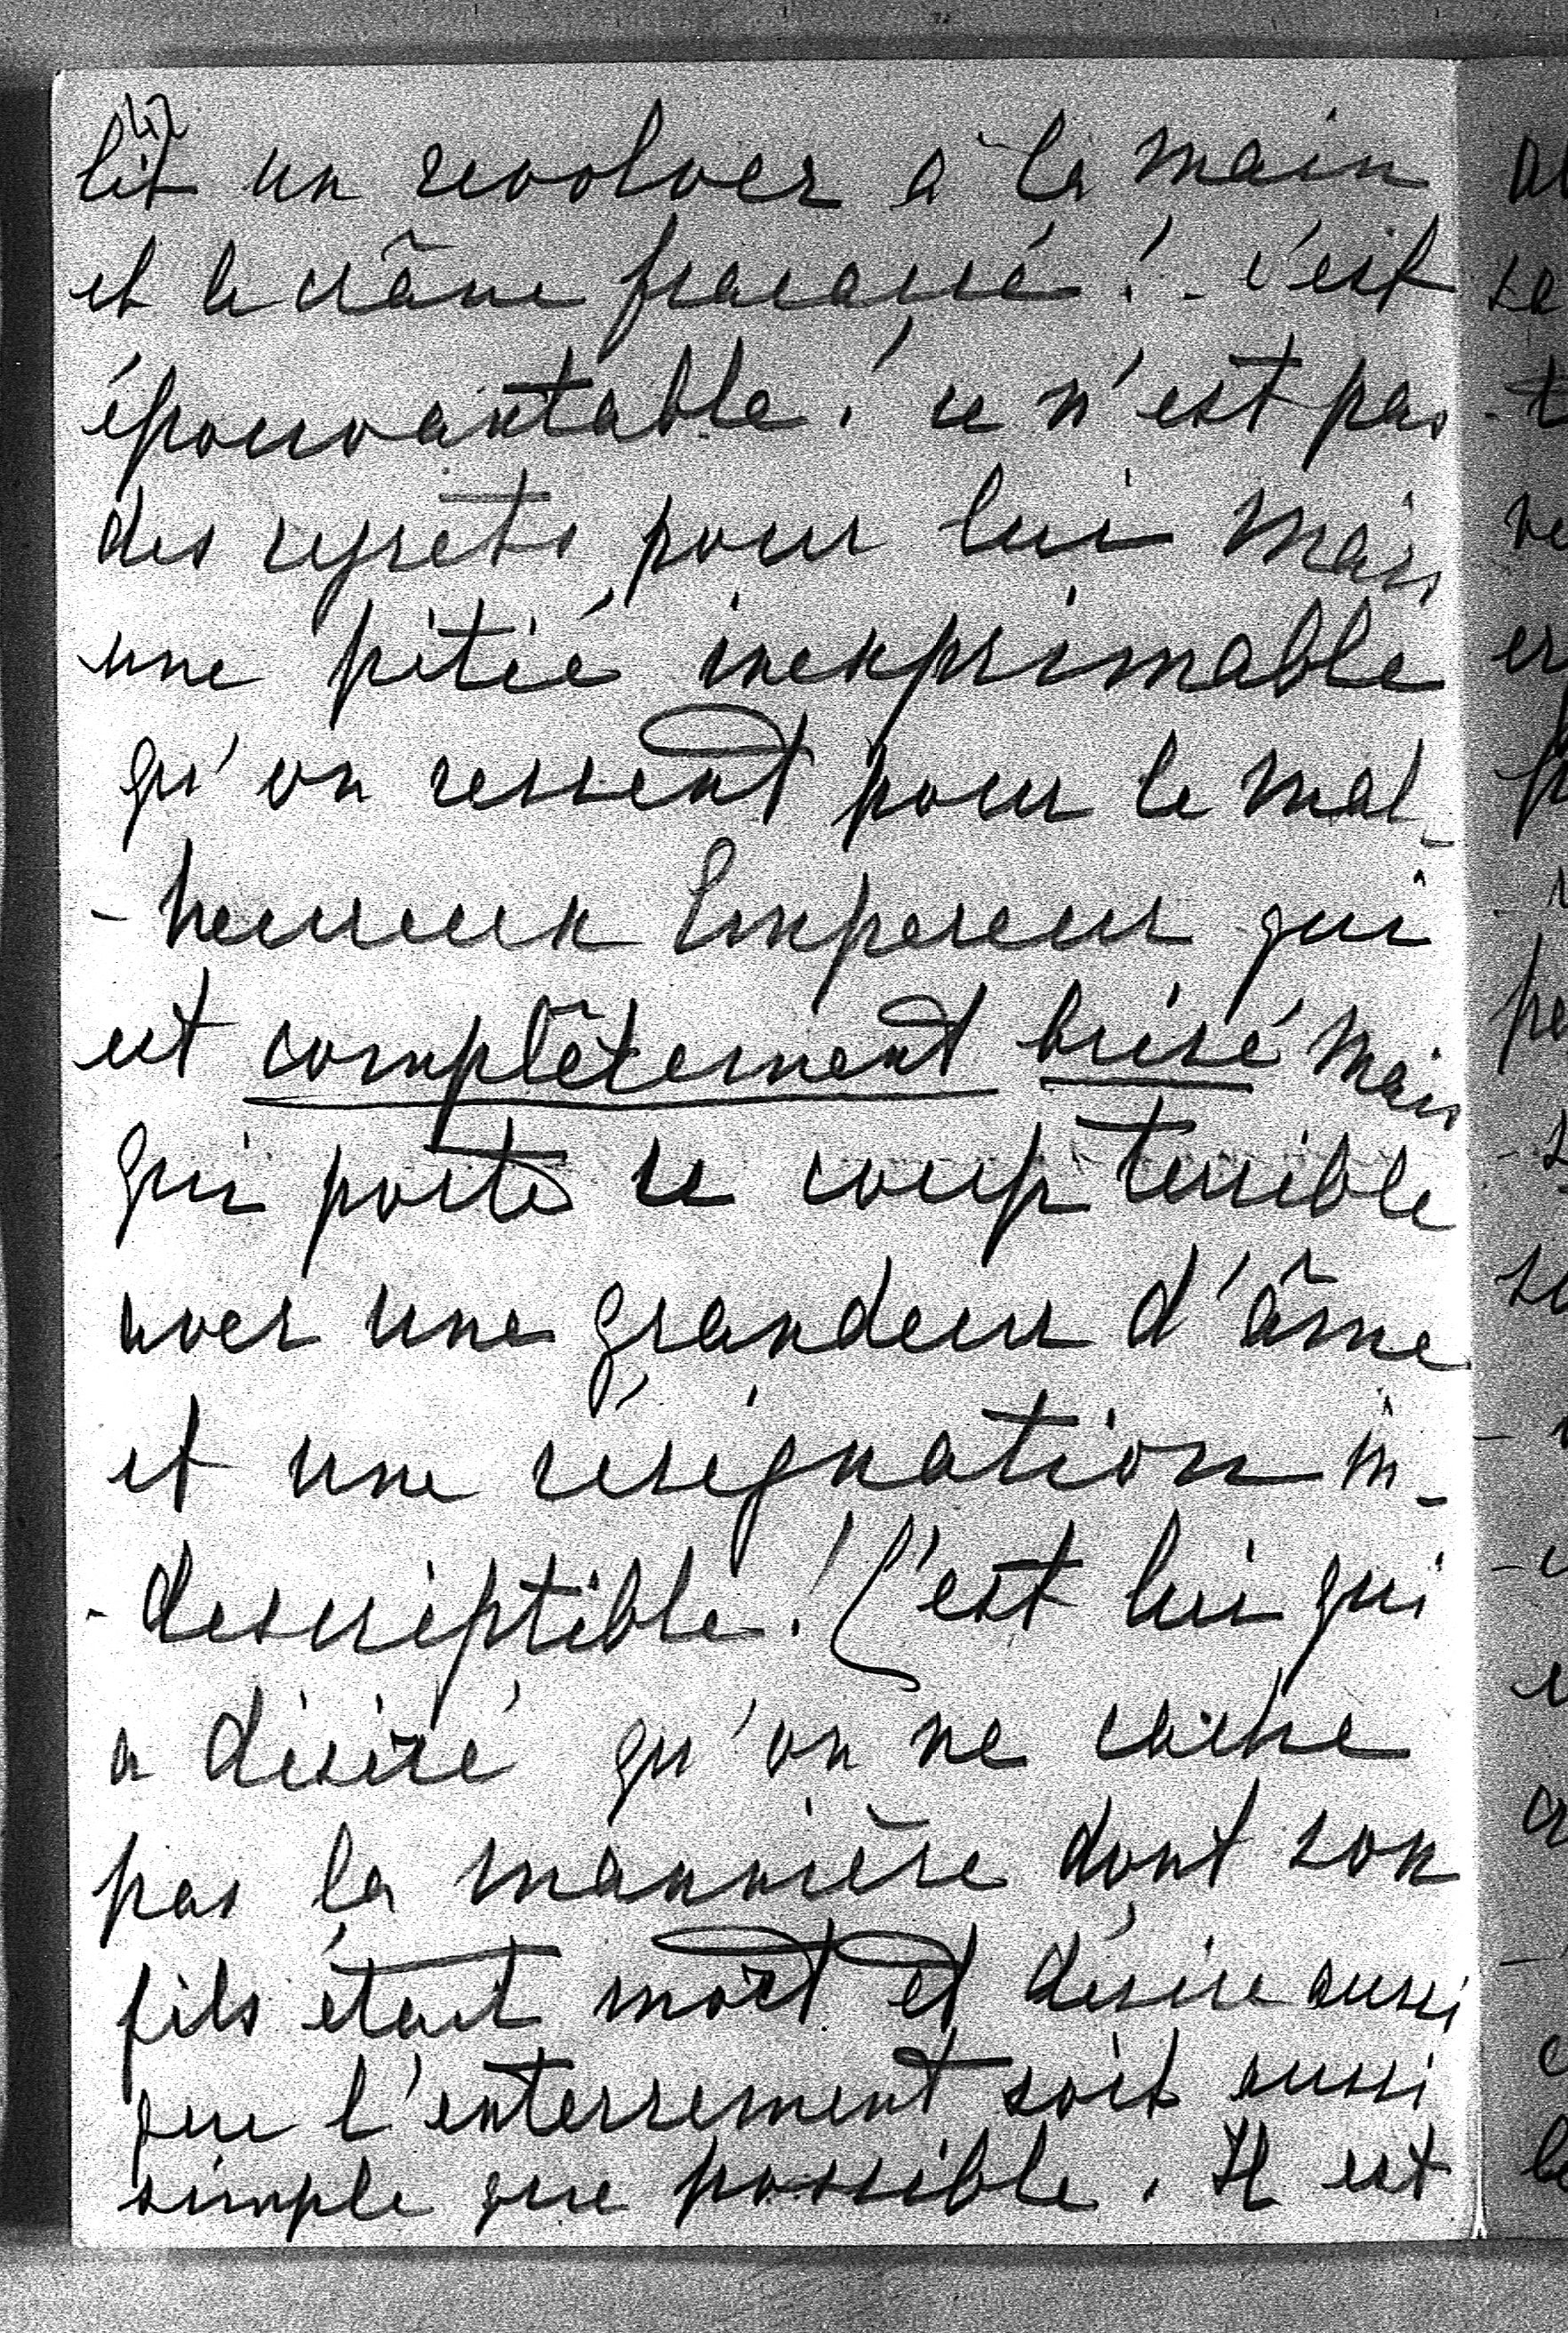 lit un revolver à la main
et le crâne fracassé! - c'est
épouvantable! ce n'est pas
des regrets pour lui mais
une pitié inexprimable
qu'on ressent pour le mal-
-heureux Empereur qui
est complètement brisé mais
qui porte ce coup terrible
avec une grandeur d'âme
et une résignation in-
-descriptible! C'est lui qui
a désiré qu'on ne cache
pas la mannière dont son
fils était mort et désire aussi
que l'enterrement soit aussi
simple que possible. Il est